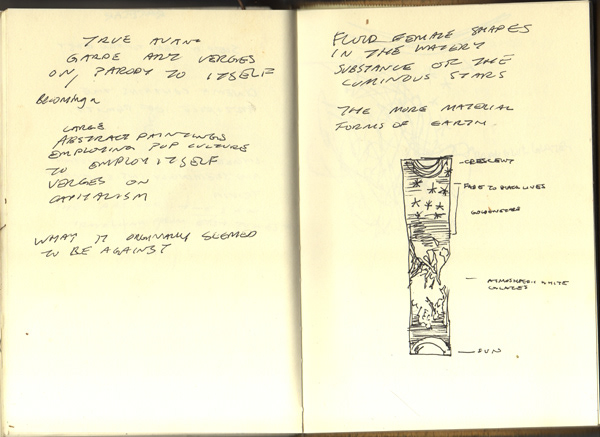 TRUE AVAN-
GARDE ART VERGES
ON PARODY TO ITSELF
Becoming
LARGE
ABSTRACT PAINTINGS
EMPLOYING POP CULTURE
TO EMPLOY ITSELF
VERGES ON
CAPITALISM
WHAT IT ORIGINALLY SEEMED
TO BE AGAINST
FLUID FEMALE SHAPES
IN THE WATERY
SUBSTANCE OF THE
LUMINOUS STARS
THE MORE MATERIAL
FORMS OF EARTH.
CRESCENT
FADE TO BLACK LINES
WHITE
SUN